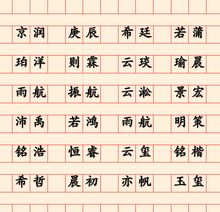 京润 庚辰 希廷 若蒲
珀洋 则霖 云琰 瑜晨
雨航 振航 云淞 景宏
沛禹 若鸿 雨航 明策
铭浩 恒睿 云玺 铭楷
希哲 晨初 亦帆 玉玺